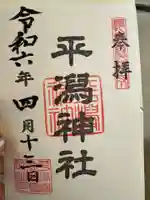 奉拝
平潟神社
令和六年四月十三日